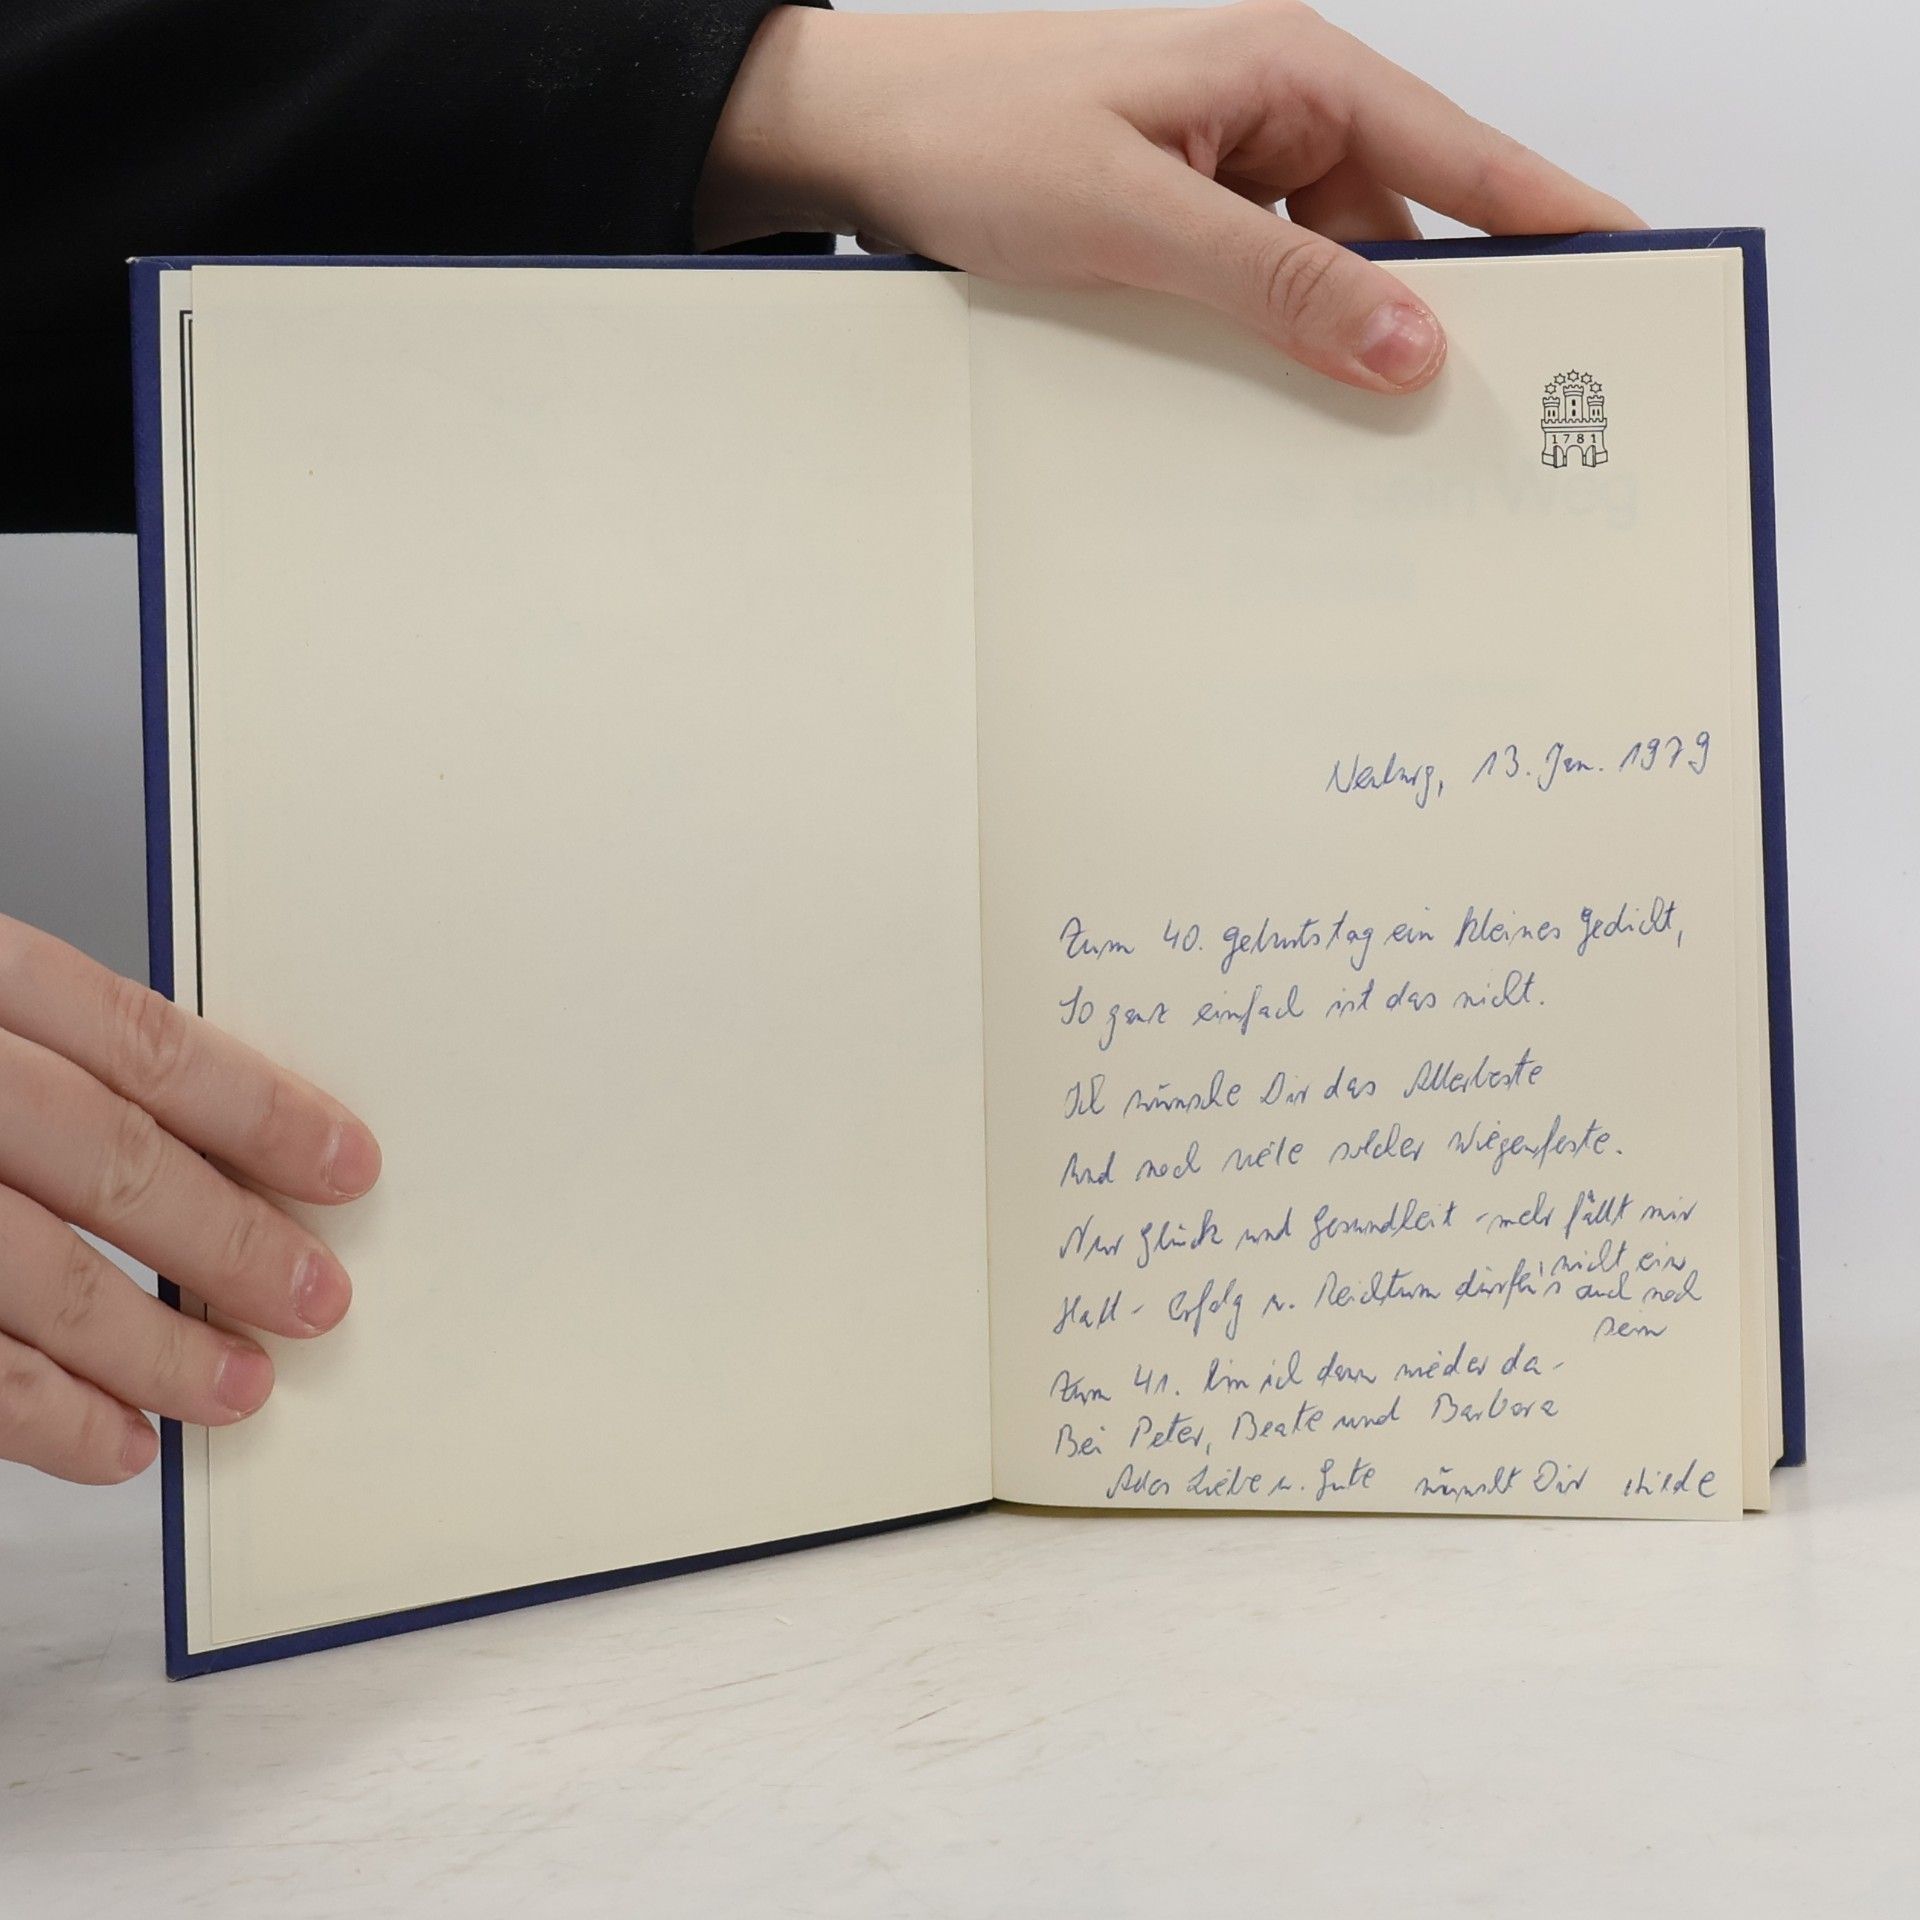 1781
Neuburg, 13. Jan. 1979
Zum 40. Geburtstag ein kleines Gedicht,
So ganz einfach ist das nicht.
Ich wünsche Dir das Allerbeste
Und noch viele solcher Wiegenfeste.
Nur Glück und Gesundheit - mehr fällt mir
nicht ein
Halt - Erfolg u. Reichtum dürfen's auch noch
sein
Zum 41. bin ich dann wieder da -
Bei Peter, Beate und Barbara
Alles Liebe u. Gute wünscht Dir Hilde